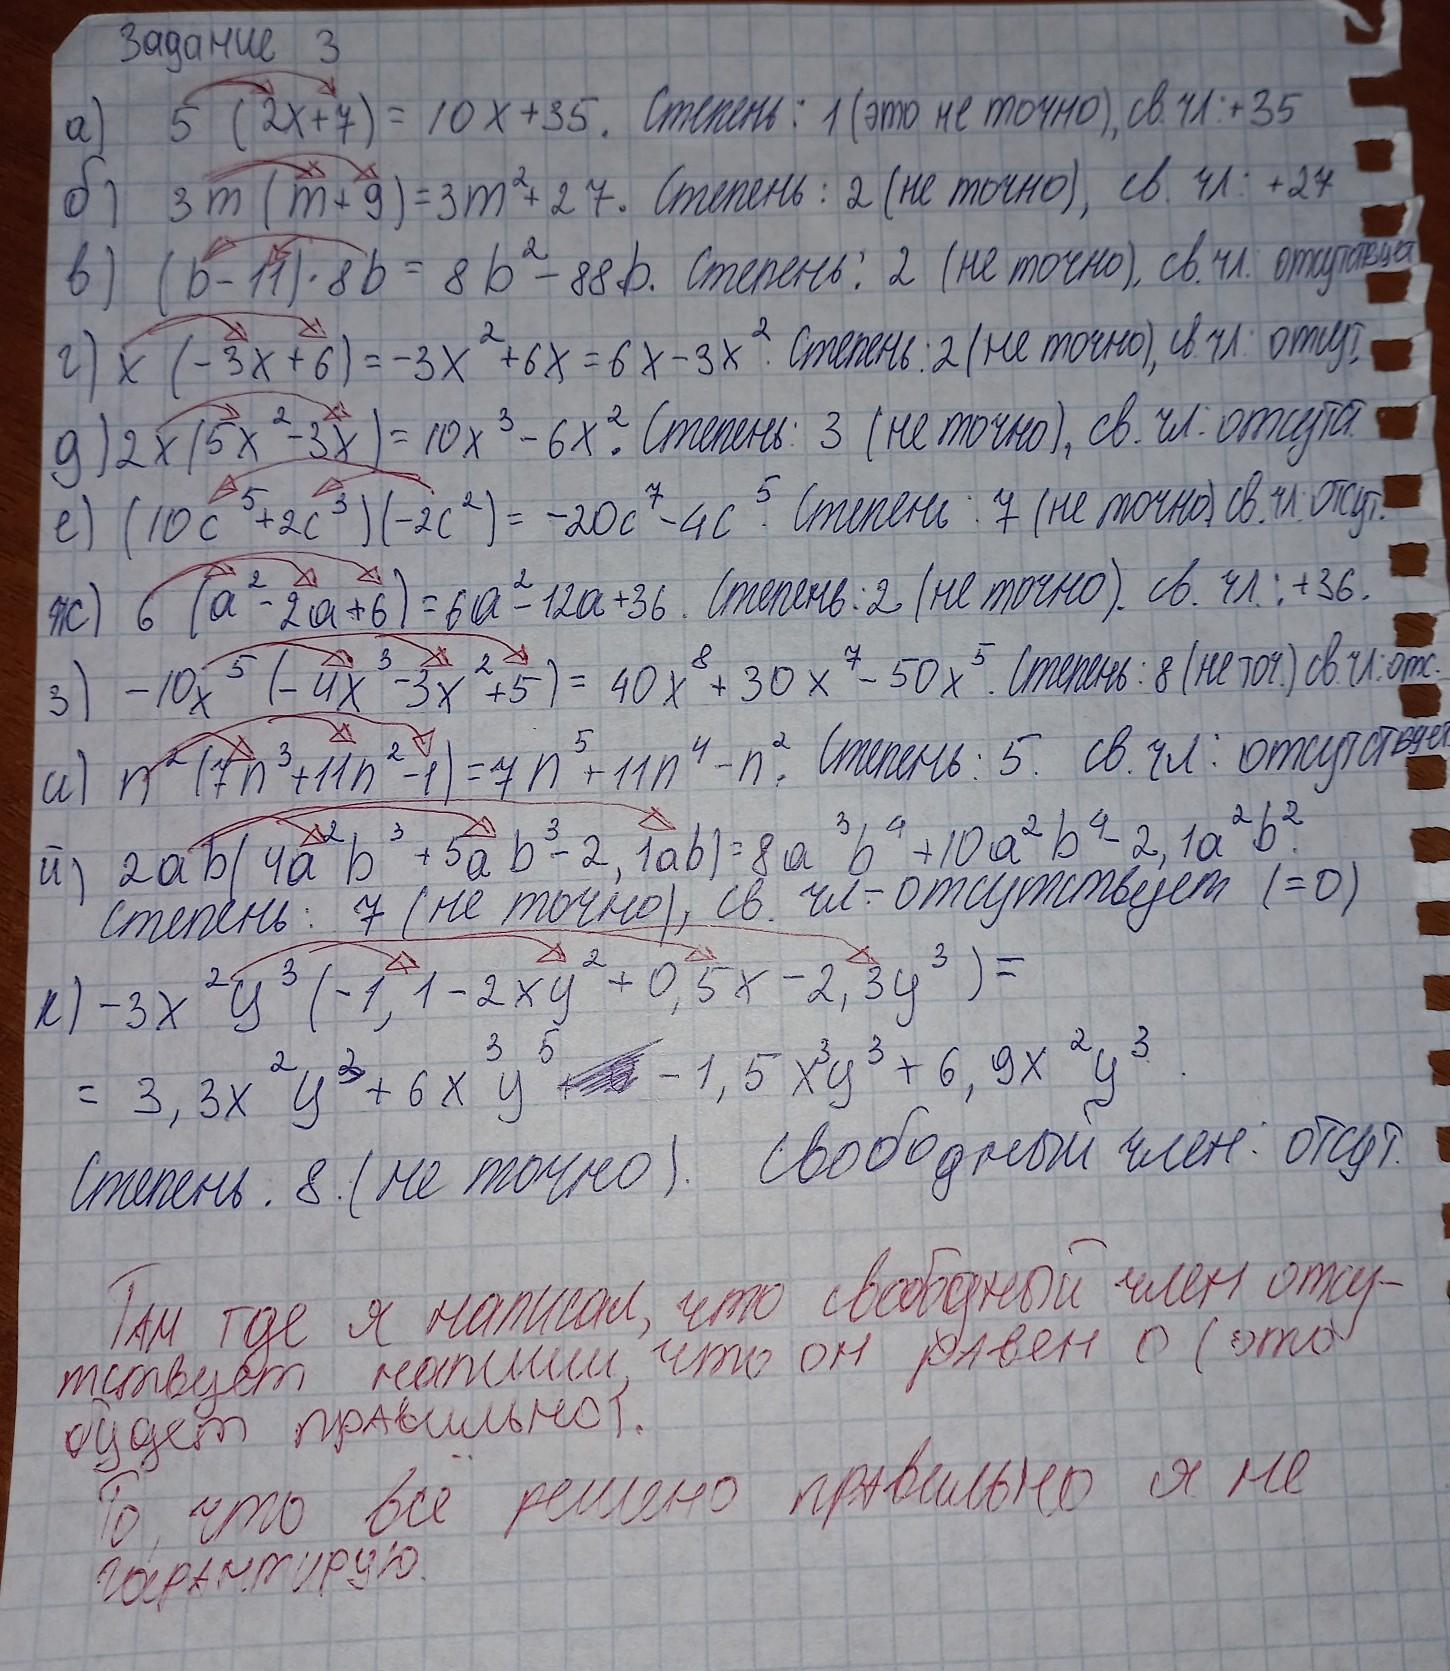 Задание 3
а) 5 (2x+7) = 10x+35. Степень: 1 (это не точно), св. чл: +35
б) 3m (m+9) = 3m²+27. Степень: 2 (не точно), св. чл: +27
в) (b-11)·8b = 8b²-88b. Степень: 2 (не точно), св. чл. отсутствует
г) x (-3x+6) = -3x²+6x = 6x-3x². Степень: 2 (не точно), св. чл: отсут.
д) 2x(5x²-3x) = 10x³-6x². Степень: 3 (не точно), св. чл: отсутст.
е) (10c⁵+2c³)(-2c²) = -20c⁷-4c⁵. Степень: 7 (не точно) св. чл: отсут.
ж) 6 (a²-2a+6) = 6a²-12a+36. Степень: 2 (не точно). св. чл.: +36.
з) -10x⁵ (-4x³-3x²+5) = 40x⁸+30x⁷-50x⁵. Степень: 8 (не точ.) св. чл: отс.
и) n² (7n³+11n²-1) = 7n⁵+11n⁴-n². Степень: 5. св. чл: отсутствует
й) 2ab(4a²b³+5ab³-2,1ab) = 8a³b⁴+10a²b⁴-2,1a²b².
Степень: 7 (не точно), св. чл- отсутствует (=0)
к) -3x²y³ (-1,1-2xy²+0,5x-2,3y³) =
= 3,3x²y³+6x³y⁵ -1,5x³y³+6,9x²y³.
Степень: 8. (не точно). Свободный член: отсут.
Там где я написал, что свободный член отсу-
тствует напиши, что он равен 0 (это
будет правильно).
То, что всё решено правильно я не
гарантирую.